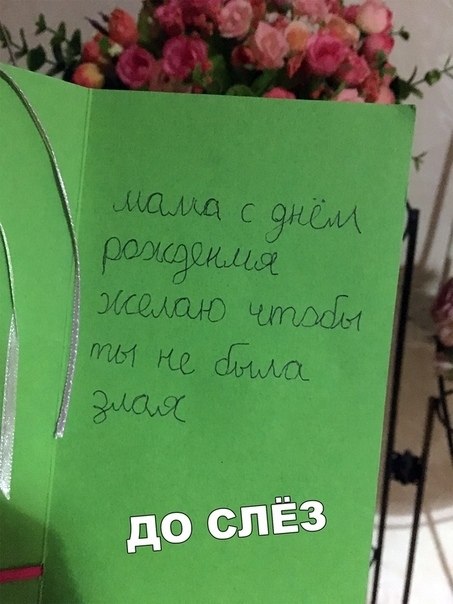 мама с днём
рождения
желаю чтобы
ты не была
злая
до слёз